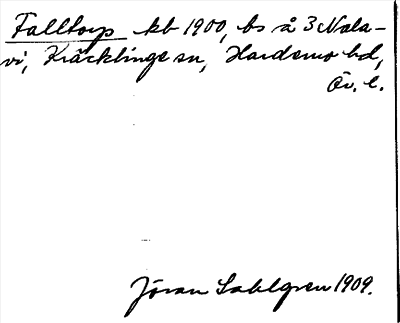 Falltorp kb 1900, bs å 3 Nala-
vi, Kräcklinge sn, Hardemo hd,
Ör. l.
Jöran Sahlgren 1909.